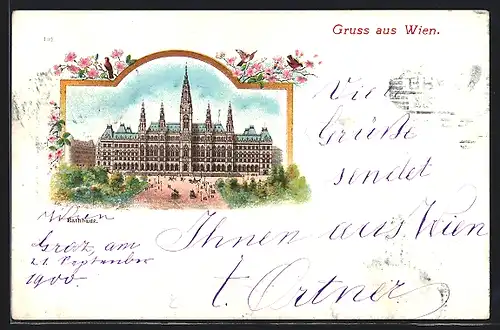 Gruss aus Wien.
Viele
Grüße
sendet
Ihnen aus Wien
t. Ortner
Wien
Rathhaus.
Graz, am
21. September
1900.